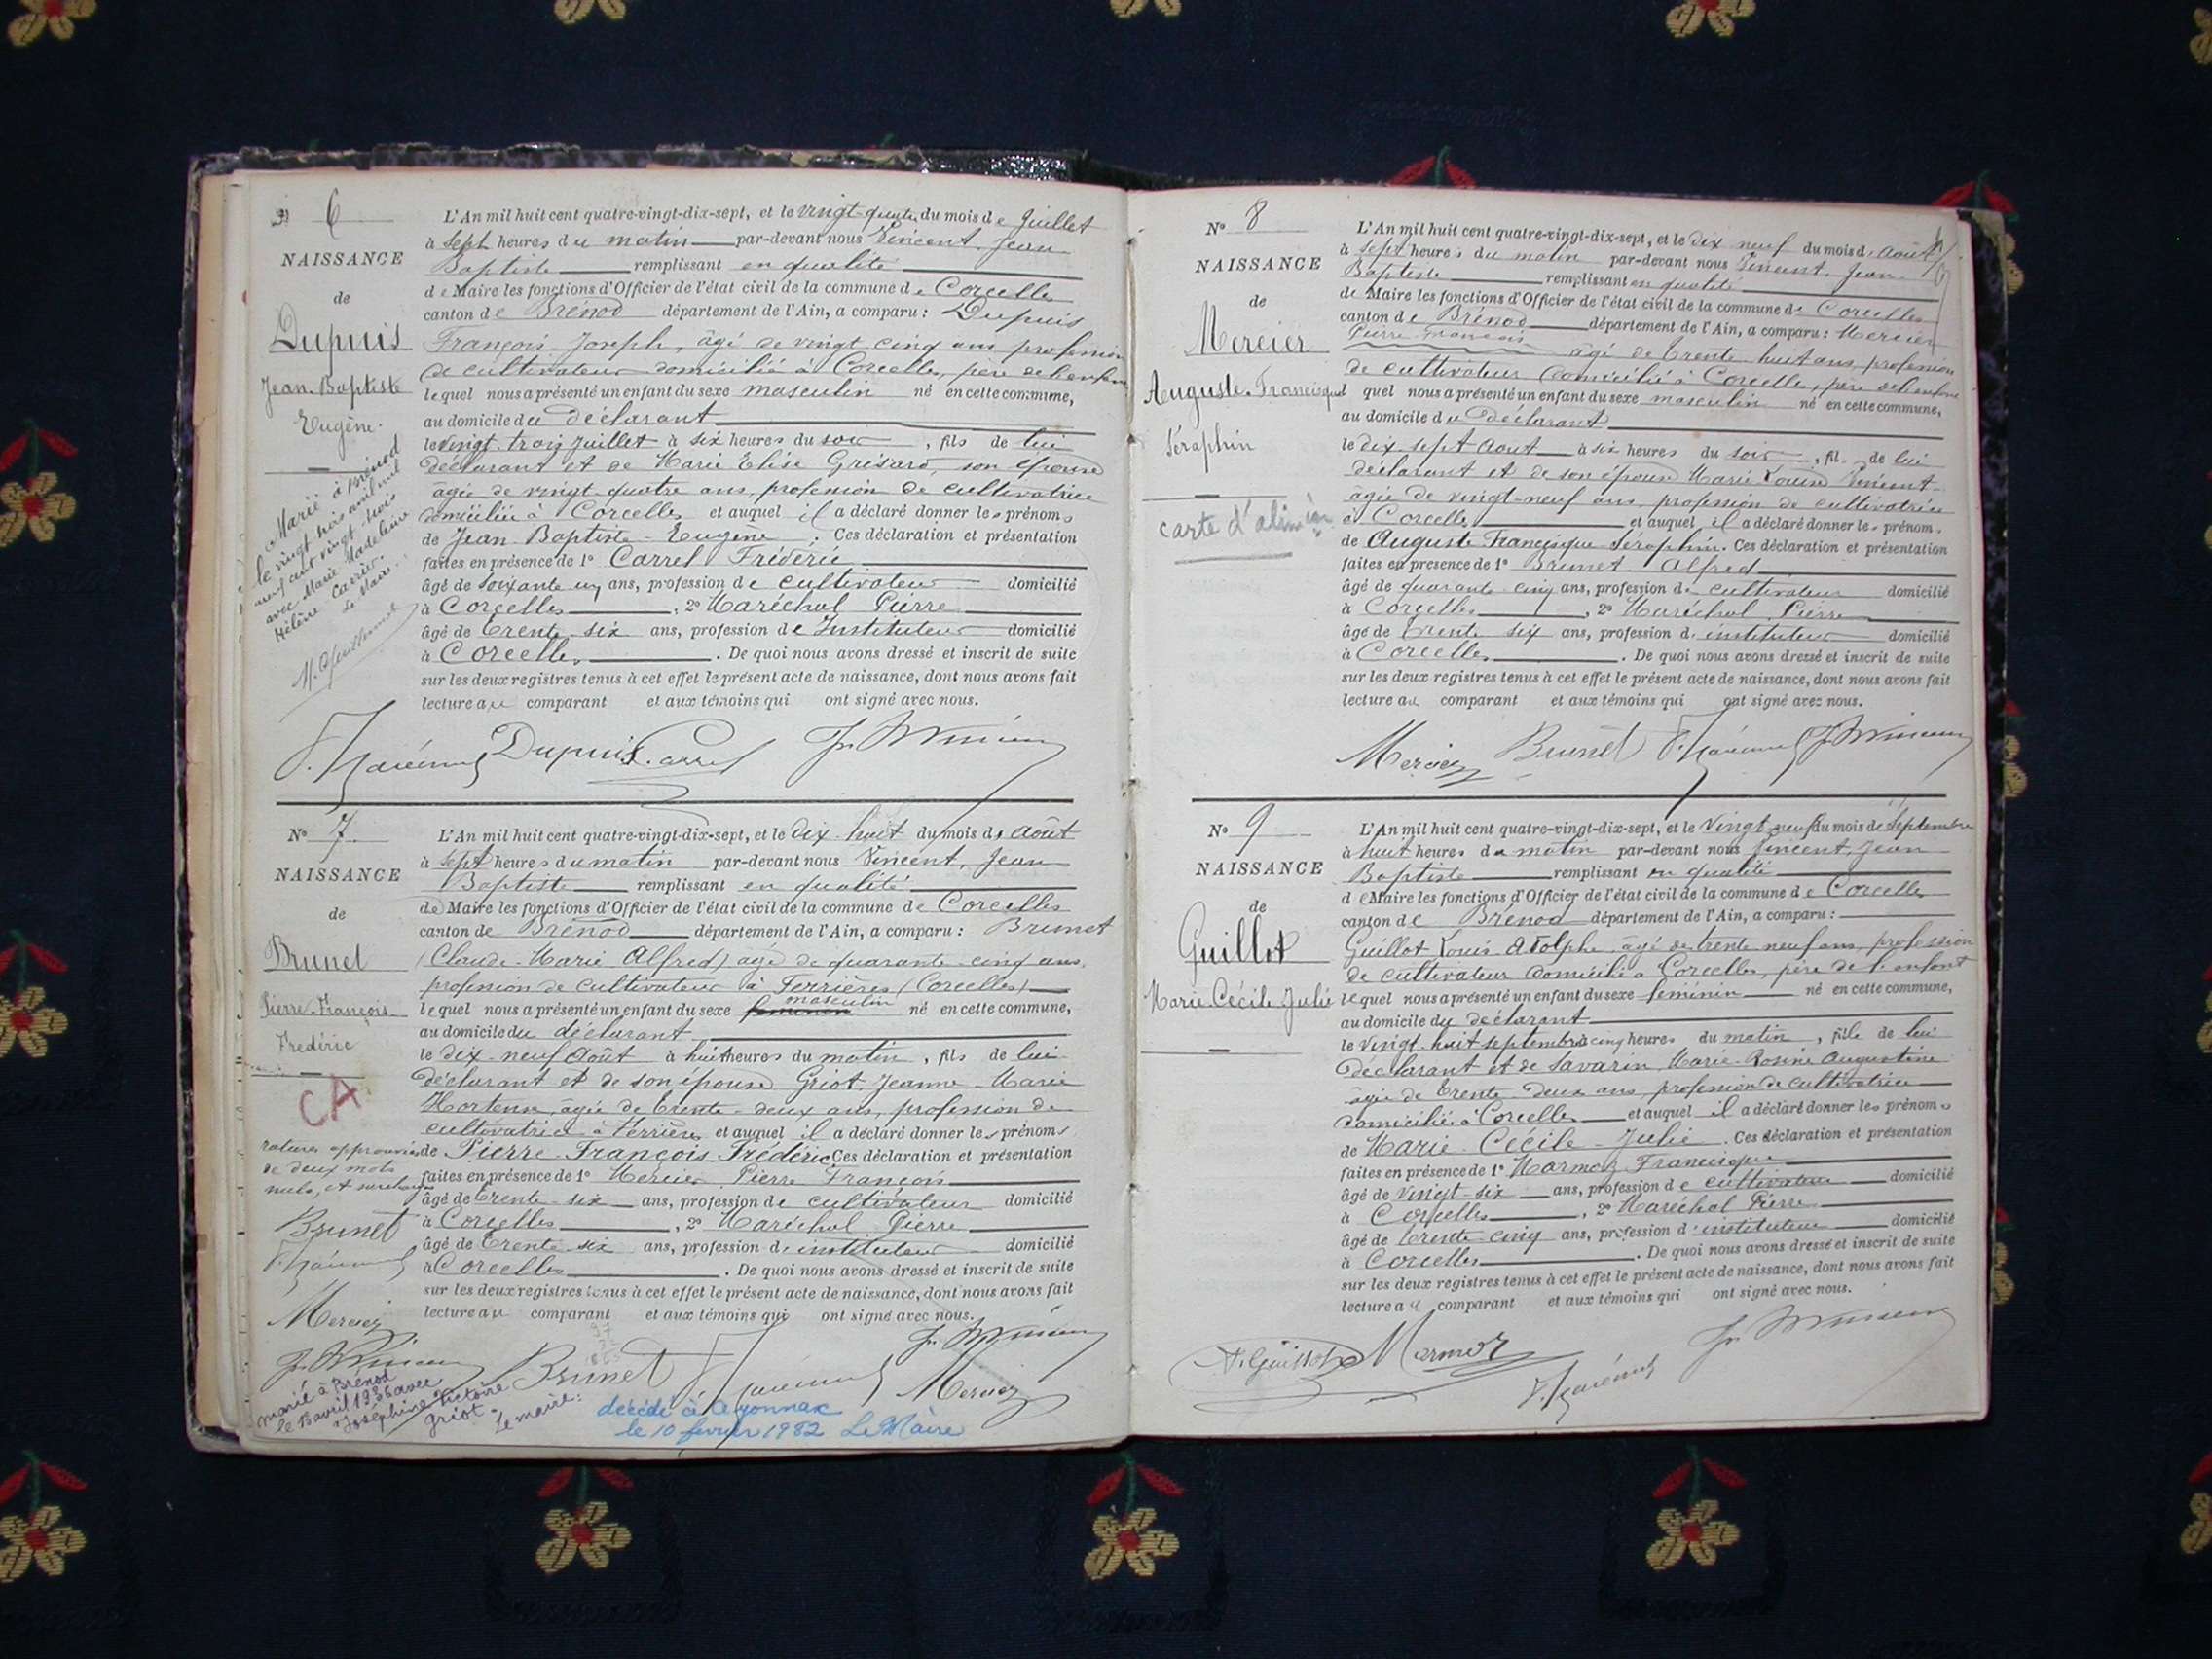 6
L'An mil huit cent quatre-vingt-dix-sept, et le vingt-quatre du mois de Juillet
à sept heures du matin par-devant nous Vincent, Jean
NAISSANCE
Baptiste remplissant en qualité
de
de Maire les fonctions d'Officier de l'état civil de la commune de Corcelles
canton de Brénod département de l'Ain, a comparu : Dupuis
Dupuis
François Joseph, âgé de vingt cinq ans profession
de cultivateur domicilié à Corcelles, père de l'enfant
Jean-Baptiste
lequel nous a présenté un enfant du sexe masculin né en cette commune,
Eugène.
au domicile du déclarant
le vingt trois Juillet à six heures du soir, fils de lui
déclarant et de Marie Elise Grisard, son épouse
âgée de vingt-quatre ans, profession de cultivatrice
domiciliée à Corcelles et auquel il a déclaré donner les prénoms
de Jean-Baptiste-Eugène ; Ces déclaration et présentation
faites en présence de 1º Carrel Frédéric
âgé de soixante un ans, profession de cultivateur domicilié
à Corcelles, 2º Maréchal Pierre
âgé de trente-six ans, profession de Instituteur domicilié
à Corcelles. De quoi nous avons dressé et inscrit de suite
sur les deux registres tenus à cet effet le présent acte de naissance, dont nous avons fait
lecture au comparant et aux témoins qui ont signé avec nous.
Marié à Brénod
le vingt trois avril mil
neuf cent vingt-trois
avec Marie Madeleine
Hélène Carrier.
Le Maire :
Dupuis Carrel
Nº 7.
L'An mil huit cent quatre-vingt-dix-sept, et le dix-huit du mois de Août
à sept heures du matin par-devant nous Vincent, Jean
NAISSANCE
Baptiste remplissant en qualité
de
de Maire les fonctions d'Officier de l'état civil de la commune de Corcelles
canton de Brénod département de l'Ain, a comparu : Brunet
Brunet
(Claude-Marie Alfred) âgé de quarante-cinq ans,
profession de cultivateur à Ferrières (Corcelles)
masculin
Pierre-François
lequel nous a présenté un enfant du sexe féminin né en cette commune,
Frédéric
au domicile du déclarant
le dix-neuf Août à huit heures du matin, fils de lui
déclarant et de son épouse Griot, Jeanne-Marie
CA
Hortense, âgée de trente-deux ans, profession de
cultivatrice à Ferrières et auquel il a déclaré donner les prénoms
de Pierre-François-Frédéric Ces déclaration et présentation
faites en présence de 1º Mercier Pierre François
âgé de trente-six ans, profession de cultivateur domicilié
à Corcelles, 2º Maréchal Pierre
âgé de trente-six ans, profession de instituteur domicilié
à Corcelles. De quoi nous avons dressé et inscrit de suite
sur les deux registres tenus à cet effet le présent acte de naissance, dont nous avons fait
lecture au comparant et aux témoins qui ont signé avec nous.
ratures approuvées
de deux mots
nuls, et surcharge
Brunet
Mercier
Brunet Mercier
marié à Brénod
le 18 avril 1936 avec
Joséphine Victoire
Griot.
Le maire :
décédé à Oyonnax
le 10 février 1982 Le Maire
Nº 8
L'An mil huit cent quatre-vingt-dix-sept, et le dix neuf du mois d'Août
à sept heures du matin par-devant nous Vincent, Jean
NAISSANCE
Baptiste remplissant en qualité
de
de Maire les fonctions d'Officier de l'état civil de la commune de Corcelles
canton de Brénod département de l'Ain, a comparu : Mercier
Mercier
Pierre François âgé de trente huit ans, profession
de cultivateur domicilié à Corcelles, père de l'enfant
Auguste-Francisque
lequel nous a présenté un enfant du sexe masculin né en cette commune,
au domicile du déclarant
Séraphin
le dix sept Août à six heures du soir, fils de lui
déclarant et de son épouse Marie Louise Vincent
âgée de vingt-neuf ans, profession de cultivatrice
carte d'alim
à Corcelles et auquel il a déclaré donner les prénoms
de Auguste Francisque Séraphin. Ces déclaration et présentation
faites en présence de 1º Brunet Alfred
âgé de quarante-cinq ans, profession de cultivateur domicilié
à Corcelles, 2º Maréchal Pierre
âgé de trente six ans, profession d'instituteur domicilié
à Corcelles. De quoi nous avons dressé et inscrit de suite
sur les deux registres tenus à cet effet le présent acte de naissance, dont nous avons fait
lecture au comparant et aux témoins qui ont signé avec nous.
Mercier Brunet
Nº 9
L'An mil huit cent quatre-vingt-dix-sept, et le vingt-neuf du mois de Septembre
à huit heures du matin par-devant nous Vincent, Jean
NAISSANCE
Baptiste remplissant en qualité
de
de Maire les fonctions d'Officier de l'état civil de la commune de Corcelles
canton de Brénod département de l'Ain, a comparu :
Guillot
Guillot Louis Adolphe, âgé de trente neuf ans, profession
de cultivateur domicilié à Corcelles, père de l'enfant
Marie-Cécile Julie
lequel nous a présenté un enfant du sexe féminin né en cette commune,
au domicile du déclarant
le vingt-huit septembre à cinq heures du matin, fille de lui
déclarant et de Savarin, Marie-Rosine Augustine
âgée de trente-deux ans, profession de cultivatrice
domiciliée à Corcelles et auquel il a déclaré donner les prénoms
de Marie-Cécile-Julie. Ces déclaration et présentation
faites en présence de 1º Marmoz Francisque
âgé de vingt-six ans, profession de cultivateur domicilié
à Corcelles, 2º Maréchal Pierre
âgé de trente-cinq ans, profession d'instituteur domicilié
à Corcelles. De quoi nous avons dressé et inscrit de suite
sur les deux registres tenus à cet effet le présent acte de naissance, dont nous avons fait
lecture au comparant et aux témoins qui ont signé avec nous.
A. Guillot Marmoz